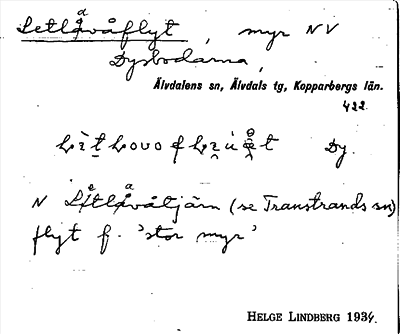 Setlåvåflyt, myr NV
Dysbodarna,
Älvdalens sn, Älvdals tg, Kopparbergs län.
422.
Dy.
N Sätlavåtjärn (se Transtrands sn)
flyt f. 'stor myr'
HELGE LINDBERG 1934.